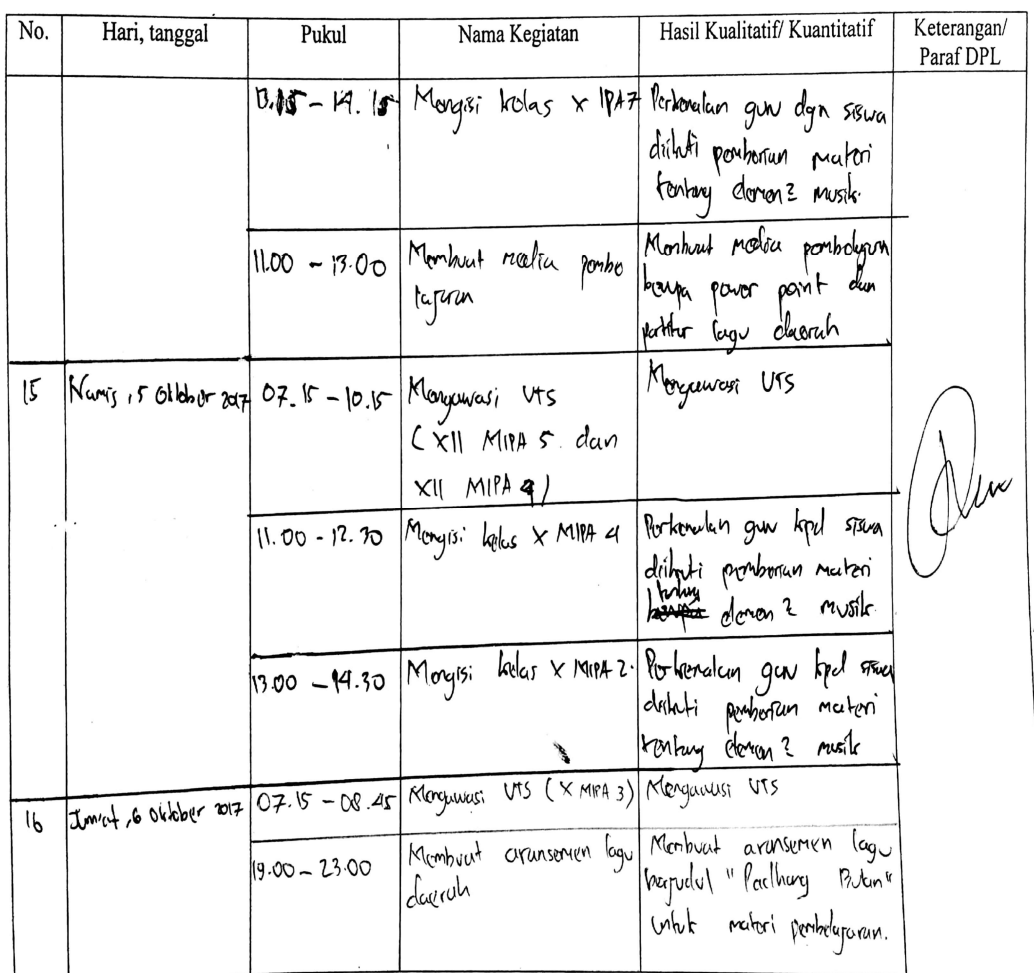 No. Hari, tanggal Pukul Nama Kegiatan Hasil Kualitatif/ Kuantitatif Keterangan/
Paraf DPL
13.15 - 14.15 Mengisi kelas X IPA 7 Perkenalan guru dgn siswa
diikuti pemberian materi
tentang elemen2 musik.
11.00 - 13.00 Membuat media pembe Membuat media pembelajaran
lajaran berupa power point dan
partitur lagu daerah
15 Kamis, 5 Oktober 2017 07.15 - 10.15 Mengawasi UTS Mengawasi UTS
(XII MIPA 5 dan
XII MIPA 4)
11.00 - 12.30 Mengisi kelas X MIPA 4 Perkenalan guru kpd siswa
diikuti pemberian materi
tentang elemen2 musik
13.00 - 14.30 Mengisi kelas X MIPA 2. Perkenalan guru kpd siswa
diikuti pemberian materi
tentang elemen2 musik
16 Jum'at, 6 Oktober 2017 07.15 - 08.45 Mengawasi UTS (X MIPA 3) Mengawasi UTS
19.00 - 23.00 Membuat aransemen lagu Membuat aransemen lagu
daerah berjudul "Padhang Bulan"
untuk materi pembelajaran.